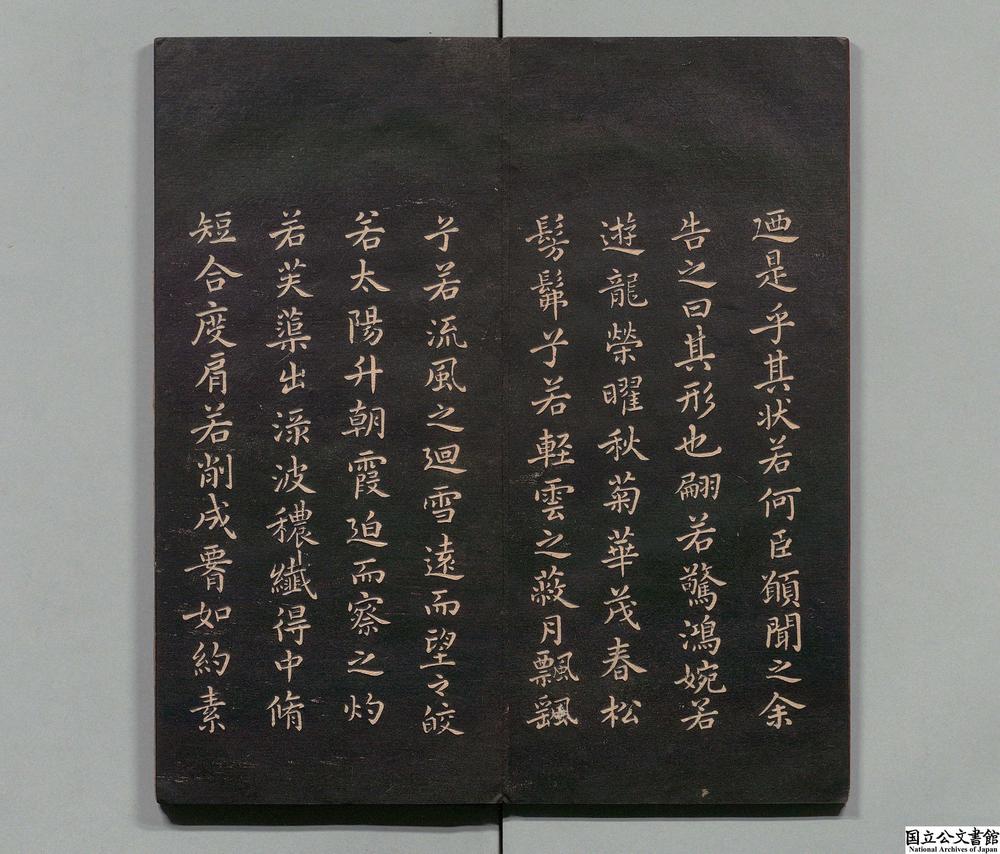 迺是乎其状若何臣願聞之余
告之曰其形也翩若驚鴻婉若
遊龍榮曜秋菊華茂春松
髣髴兮若軽雲之蔽月飄飖
兮若流風之迴雪遠而望之皎
若太陽升朝霞迫而察之灼
若芙蕖出渌波穠纖得中脩
短合度肩若削成要如約素
国立公文書館
National Archives of Japan